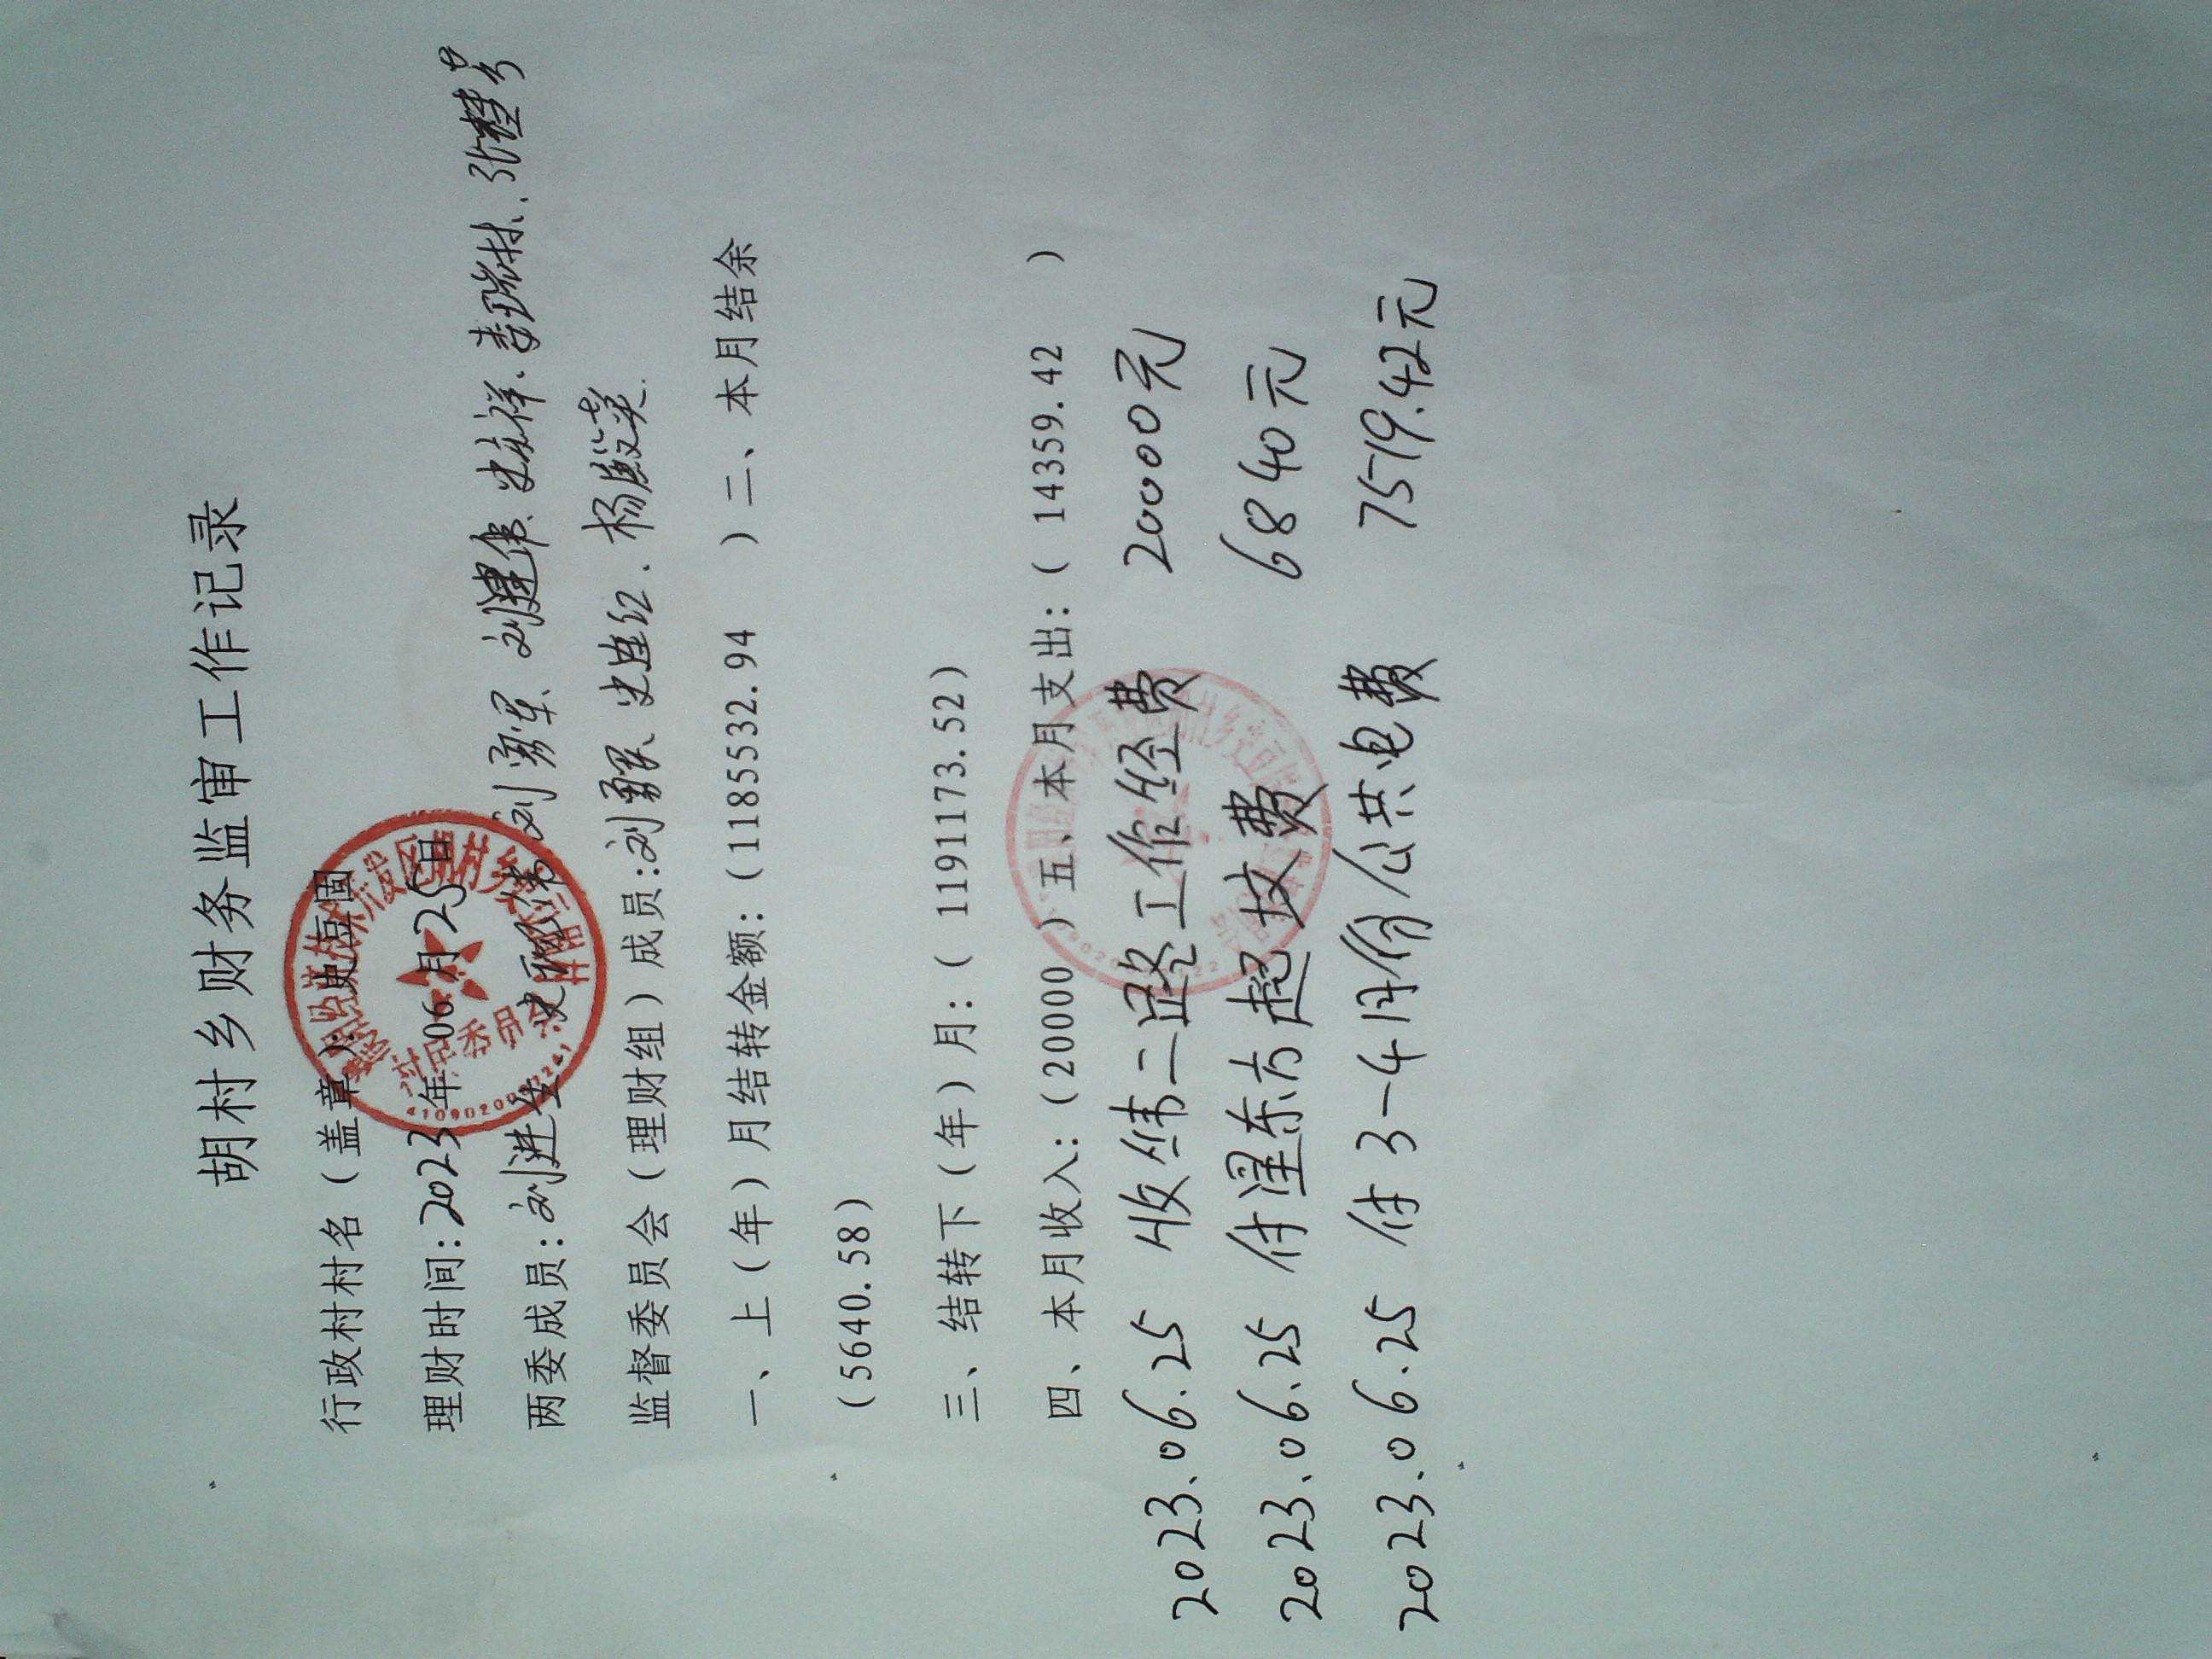 胡村乡财务监审工作记录
行政村村名（盖章）：史垣固
理财时间：2023年06月25日
两委成员：刘进生 刘勇军、刘建伟、史文祥、娄瑞林、张桂芳
监督委员会（理财组）成员：刘献、史进红、杨殿英
一、上（年）月结转金额：（1185532.94 ）二、本月结余
（5640.58）
三、结转下（年）月：（ 1191173.52）
四、本月收入：（20000 ）五、本月支出：（ 14359.42 ）
2023.06.25 收纬二路工作经费 20000元
2023.06.25 付濯东方起坟费 6840元
2023.06.25 付3-4月份公共电费 7519.42元
村民委员会